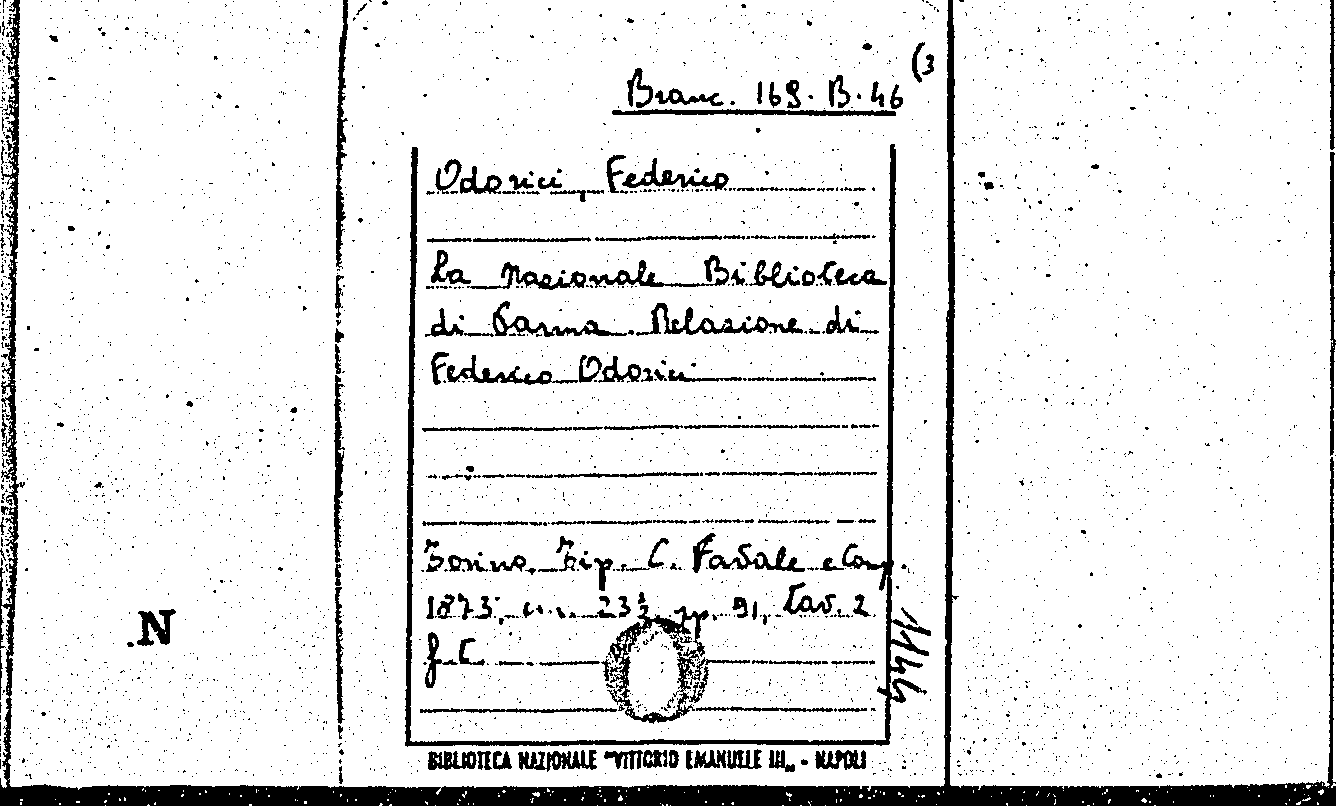 Branc. 169. B. 46 (3
Odorici, Federico
La Nazionale Biblioteca
di Parma. Relazione di
Federico Odorici
Torino. Tip. C. Favale e Comp.
1873, cm. 23½, pp. 91, tav. 2
f. t.
.N
BIBLIOTECA NAZIONALE "VITTORIO EMANUELE III„ - NAPOLI